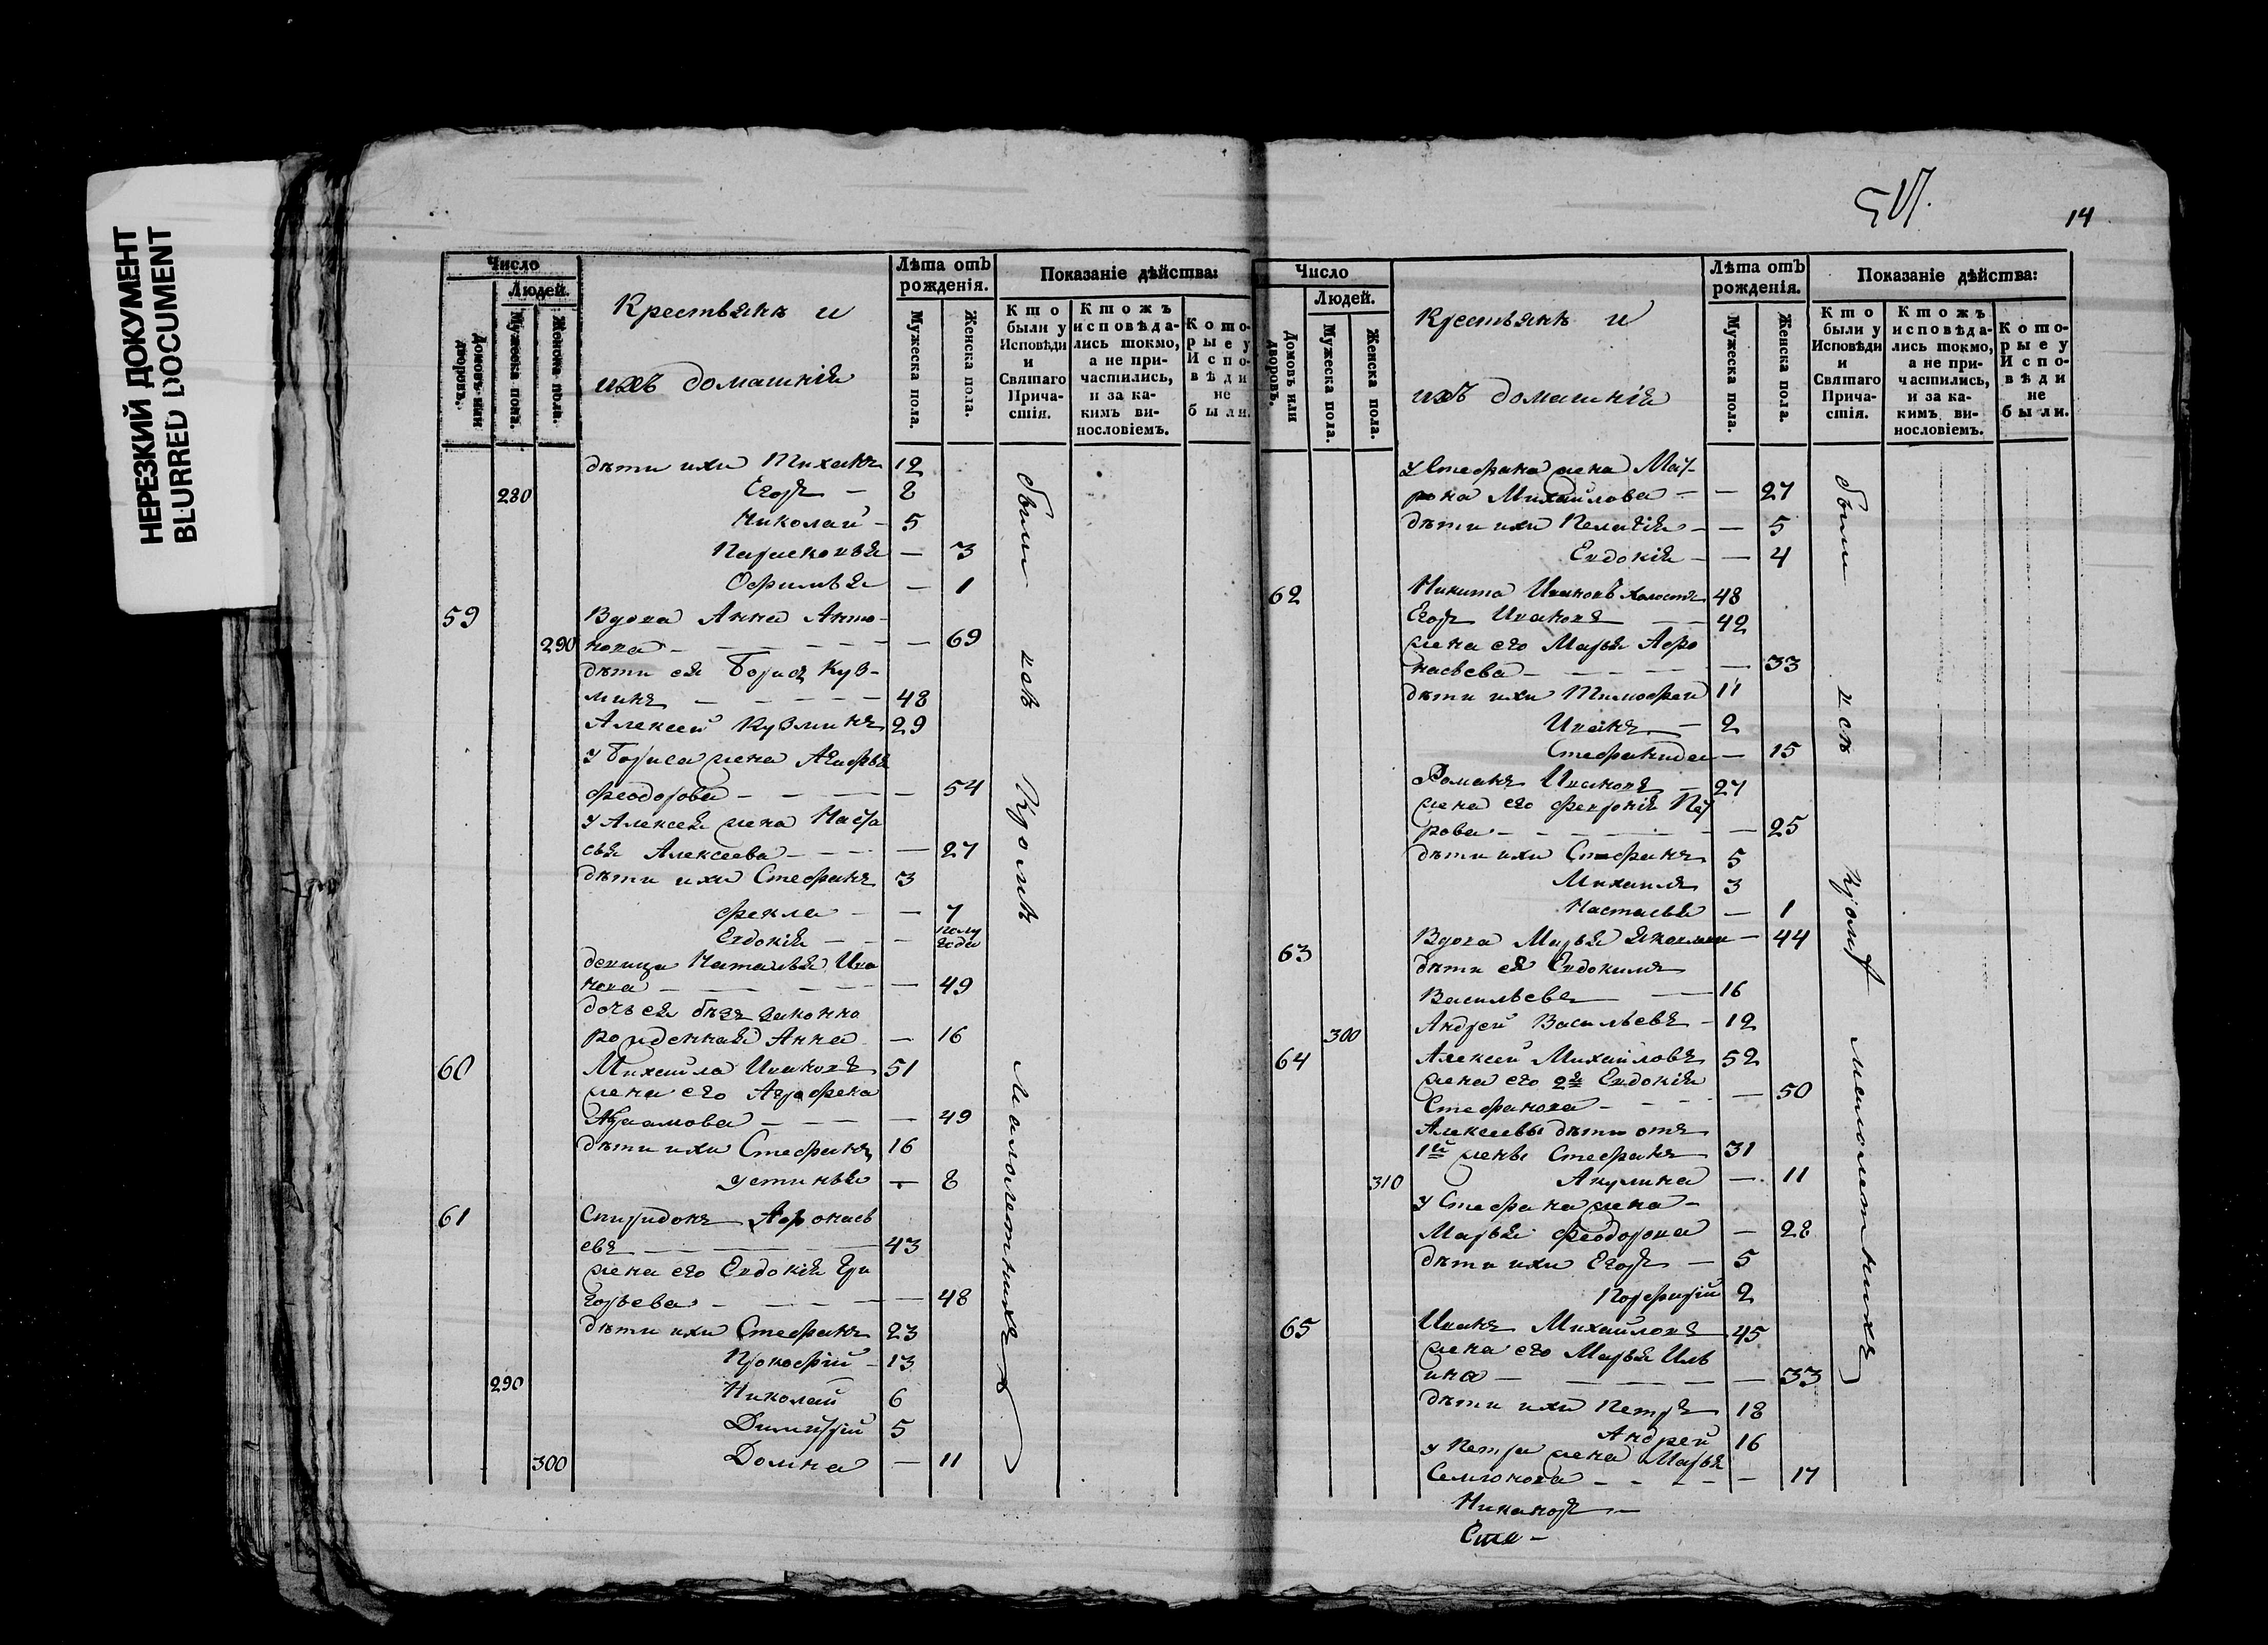 НЕРЕЗКИЙ ДОКУМЕНТ
BLURRED DOCUMENT
14
Число
Людей.
Домовъ или дворовъ.
Мужеска пола.
Женска пола.
Крестьянѣ и
ихъ домашнія
Лѣта отъ рожденія.
Мужеска пола.
Женска пола.
Показаніе дѣйства:
Кто были у Исповѣди и Святаго Причастія.
Ктожъ исповѣдались токмо, а не причастились, и за какимъ винословіемъ.
Которые у Исповѣди не были.
дѣти ихъ 12
280 Егоръ — 8
Николай — 5
Парасковья — 3
Офимья — 1
59 Вдова Анна Анто-
290 нова — — 69
дѣти ея Борисъ Куз-
минъ — 48
Алексей Кузминъ 29
у Бориса жена Агафья
Феодорова — — 54
у Алексея жена Наста
сья Алексеева — — 27
дѣти ихъ Стефанъ 3
Фекла — — 7
Евдокія — — полу года
девица Наталья Ива
нова — — 49
дочь ея бѣзъ законно
рожденная Анна — 16
60 Михаила Ивановъ 51
жена его Аграфена
Абрамова — — 49
дѣти ихъ Стефанъ 16
Устинья — 8
61 Спиридонъ Афонась
евъ — 43
жена его Евдокія Гри
горьева — — 48
дѣти ихъ Стефанъ 23
Прокофій — 13
290 Николай 6
Димитрій 5
300 Домна — 11
были всѣ кромѣ малолетнихъ
Число
Людей.
Домовъ или дворовъ.
Мужеска пола.
Женска пола.
Крестьянѣ и
ихъ домашнія
Лѣта отъ рожденія.
Мужеска пола.
Женска пола.
Показаніе дѣйства:
Кто были у Исповѣди и Святаго Причастія.
Ктожъ исповѣдались токмо, а не причастились, и за какимъ винословіемъ.
Которые у Исповѣди не были.
у Стефана жена Мат-
рона Михайлова — — 27
дѣти ихъ Пелагія — — 5
Евдокія — — 4
62 Никита Ивановъ холостъ 48
Егоръ Ивановъ — 42
жена его Марья Афо
насьева — — 33
дѣти ихъ Тимофей 11
Иванъ — 2
Стефанида — 15
Романъ Ивановъ — 27
жена его Февронія Пет
рова — — 25
дѣти ихъ Стефанъ 5
Михаилъ 3
Настасья — 1
63 Вдова Марья — 44
дѣти ея Евдокимъ
Васильевъ — 16
300 Андрей Васильевъ — 12
64 Алексей Михайловъ 52
жена его 2я Евдокія
Стефанова — — 50
Алексеевы дѣти отъ
1й жены Стефанъ 31
310 Акулина — 11
у Стефана жена —
Марья Феодорова — 28
дѣти ихъ Егоръ — 5
Порфирій 2
65 Иванъ Михайловъ 45
жена его Марья Иль
ина — — 33
дѣти ихъ Петръ 18
Андрей 16
у Петра жена Марья
Семионова — — 17
Никаноръ —
Сте —
были всѣ кромѣ малолетнихъ